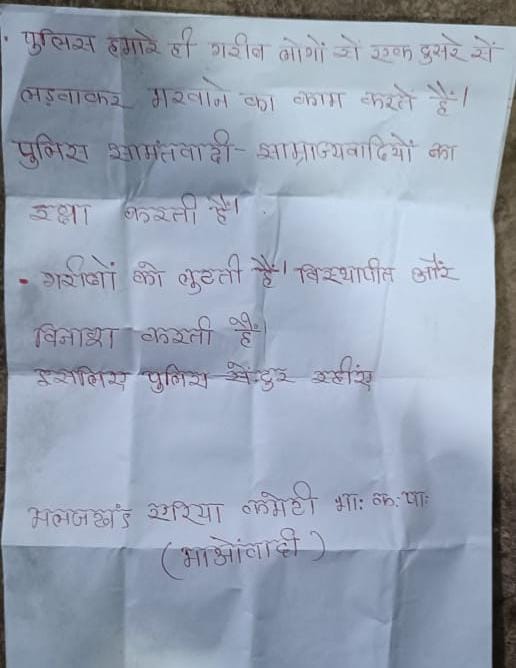 • पुलिस हमारे ही गरीब लोगों से एक दुसरे से
लड़वाकर मरवाने का काम करते हैं।
पुलिस सामंतवादी - साम्राज्यवादियों का
रक्षा करती हैं।
• गरीबों को लुटती हैं। विस्थापीत और
विनाश करती हैं।
इसलिए पुलिस से दुर रहीए
मलाजखंड एरिया कमेटी भा: क: पा:
(माओंवादी)